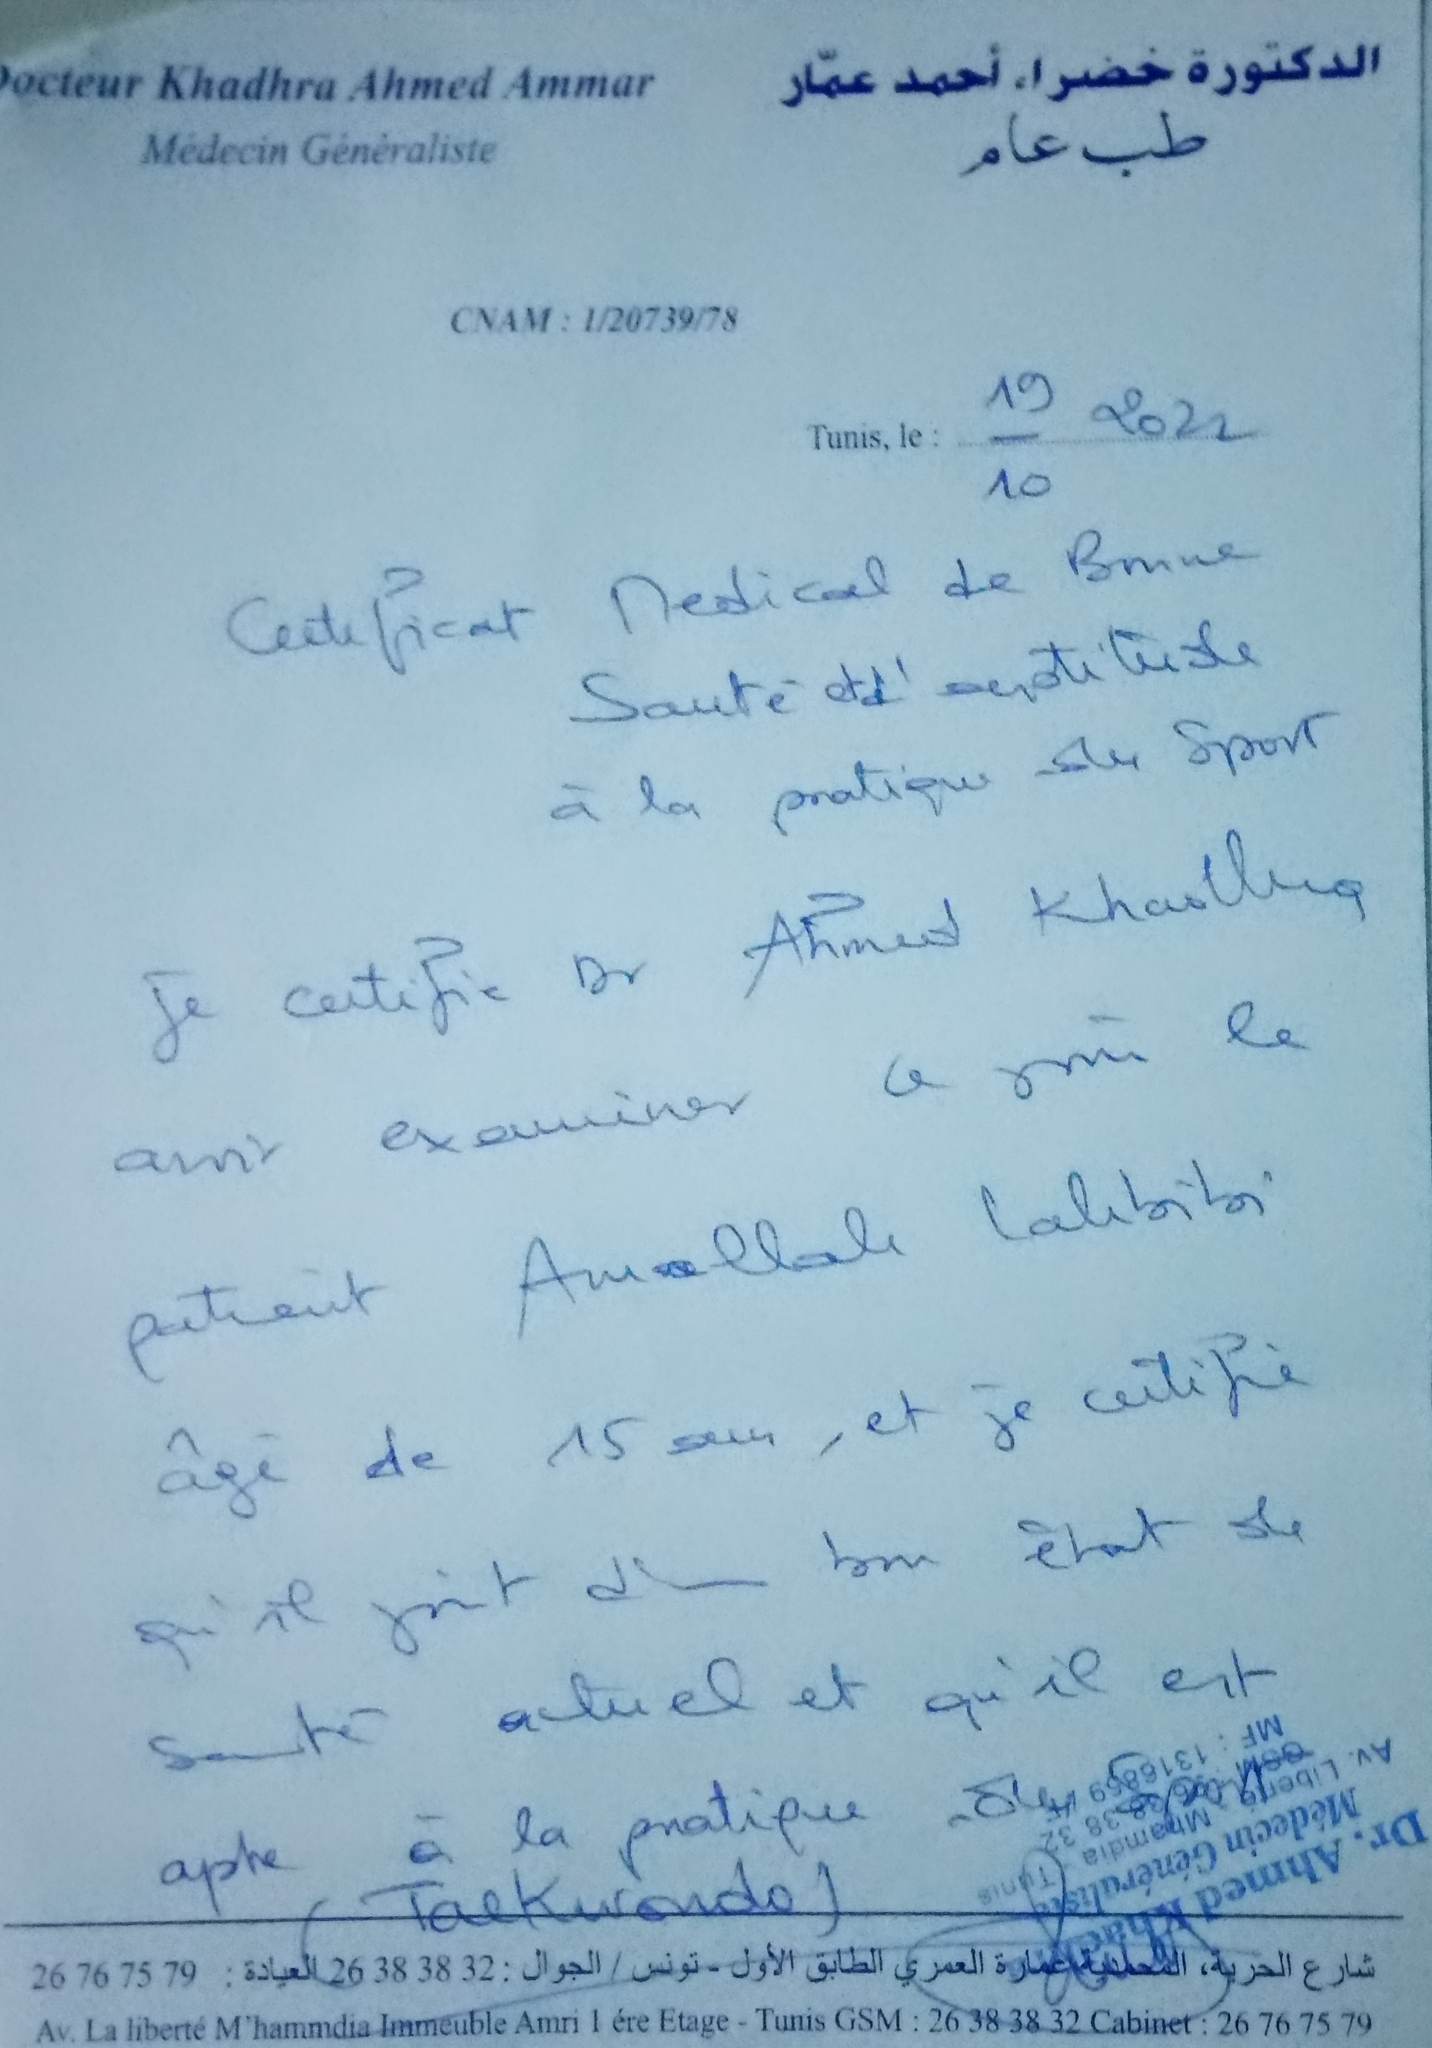 Docteur Khadhra Ahmed Ammar
الدكتورة خضراء أحمد عمّار
Médecin Généraliste
طب عام
CNAM : 1/20739/78
Tunis, le : 19/10 2022
Certificat Medical de Bonne
Santé et d'aptitude
à la pratique du Sport
Je certifie Dr Ahmed Khadhra
avoir examiner ce jour le
patient Amallah
âgé de 15 ans, et je certifie
qu'il jouit d'un bon état de
santé actuel et qu'il est
apte à la pratique du
(Taekwondo)
Dr. Ahmed Khadhra
Médecin Généraliste
Av. Liberté Mhamdia - Tunis
MF : 1316869
شارع الحرية، المحمدية عمارة العمري الطابق الأول - تونس / الجوال : 32 38 38 26 العيادة : 79 75 76 26
Av. La liberté M'hammdia Immeuble Amri 1 ére Etage - Tunis GSM : 26 38 38 32 Cabinet : 26 76 75 79